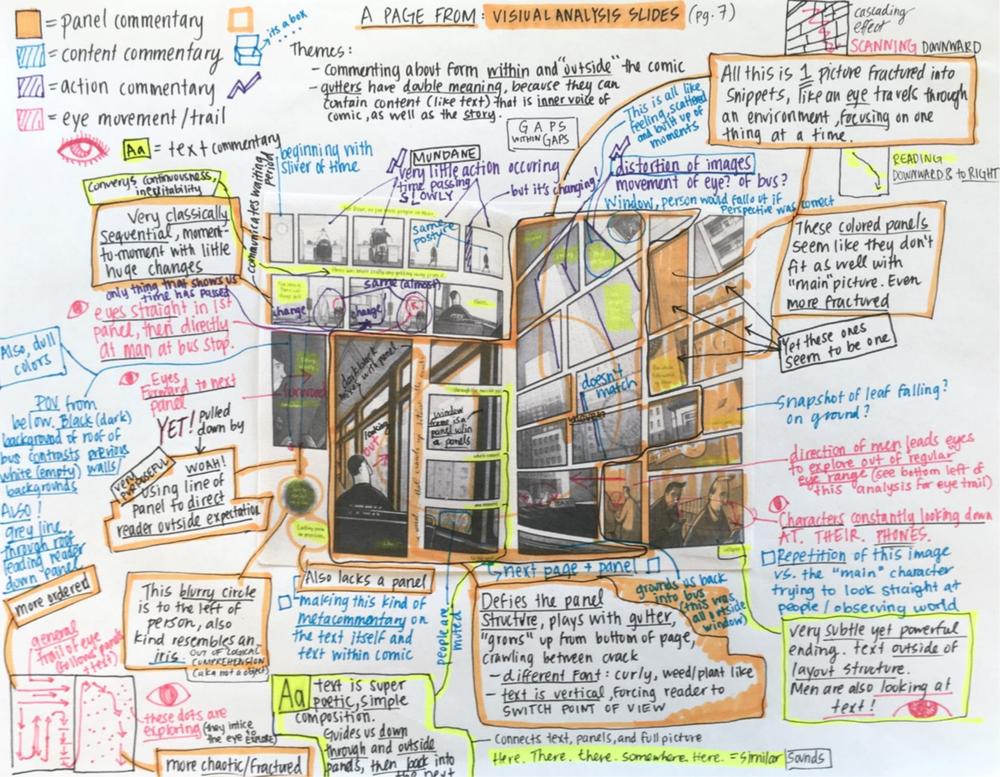 A PAGE FROM: VISIUAL ANALYSIS SLIDES (pg. 7)
= panel commentary
= content commentary
its a box
= action commentary
= eye movement/trail
Aa = text commentary
Themes:
- Commenting about form within and "outside" the comic
- gutters have double meaning, because they can
contain content (like text) that is inner voice of
comic, as well as the story.
GAPS
WITHIN GAPS
cascading
effect
SCANNING DOWNWARD
All this is 1 picture fractured into
snippets, like an eye travels through
an environment, focusing on one
thing at a time.
READING
DOWNWARD & to RIGHT
This is all like
feeling, scattered
and built up of
moments
distortion of images
movement of eye? of bus?
Window, person would fall out if
Perspective was correct
beginning with
sliver of time
MUNDANE
very little action occuring
time passing
SLOWLY
but it's changing!
same
posture
communicates waiting
period
Conveys continuousness,
inevitability
Very classically
sequential, moment-
to-moment with little
huge changes
only thing that shows us
time has passed
change
same (almost)
change
eyes straight in 1st
panel, then directly
at man at bus stop.
Also, dull
colors
Eyes
Forward to next
panel
YET! pulled
down by
forward
POV from
below. Black (dark)
background of roof of
bus contrasts previous
white (empty) walls/
backgrounds
Also!
grey line
through roof
leading reader
down panel
very
purposeful
WOAH!
using line of
panel to direct
reader outside expectation
looking
out
window
frame is a
panel w/in
a panels
doesn't
match
These colored panels
seem like they don't
fit as well with
"main" picture. Even
more fractured
Yet these ones
seem to be one
Snapshot of leaf falling?
on ground?
direction of men leads eyes
to explore out of regular
eye range (see bottom left of
this analysis for eye trail)
Characters constantly looking down
AT. THEIR. PHONES.
Repetition of this image
vs. the "main" character
trying to look straight at
people/observing world
very subtle yet powerful
ending. text outside of
layout structure.
Men are also looking at
text!
more ordered
general
trail of eye
(follows panels
+ text)
This blurry circle
is to the left of
person, also
kind resembles an
iris
OUT OF LOGICAL
COMPREHENSION
(aka not a object)
Also lacks a panel
- making this kind of
metacommentary on
the text itself and
text within comic
people are
muted
next page + panel
grounds us back
into bus
(this was
all outside
window)
Defies the panel
structure, plays with gutter,
"grows" up from bottom of page,
crawling between crack
- different font: curly, weed/plant like
- text is vertical, forcing reader to
SWITCH POINT OF VIEW
these dots are
exploring
more chaotic/fractured
Aa text is super
poetic, simple
composition.
Guides us down
through and outside
panels, then back into
the next
Connects text, panels, and full picture
Here. There. there. somewhere. Here. = similar sounds